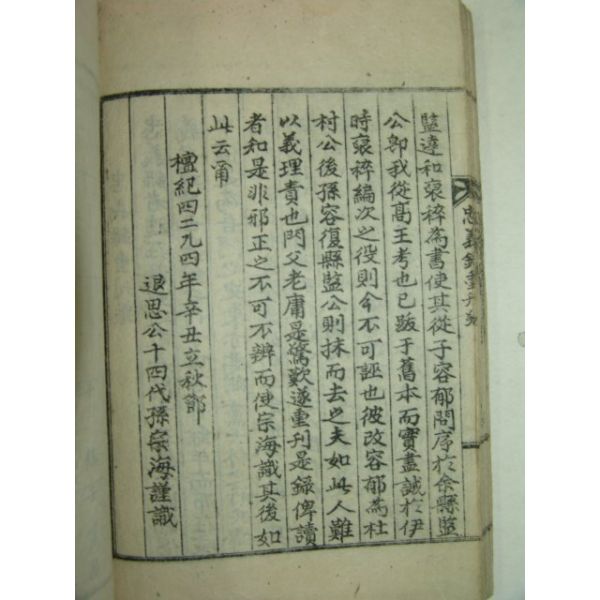 監達和裒稡為書使其從子容郁問序於余縣監
公卽我從髙王考也已跋于舊本而實盡誠於伊
時裒稡編次之役則今不可誣也彼改容郁為杜
村公後孫容復縣監公則抹而去之夫如此人難
以義理責也門父老庸是驚歎遂重刊是録俾讀
者知是非邪正之不可不辨而使宗海識其後如
此云甭
檀紀四二九四年辛丑立秋節
退思公十四代孫宗海謹識
忠義録重刊